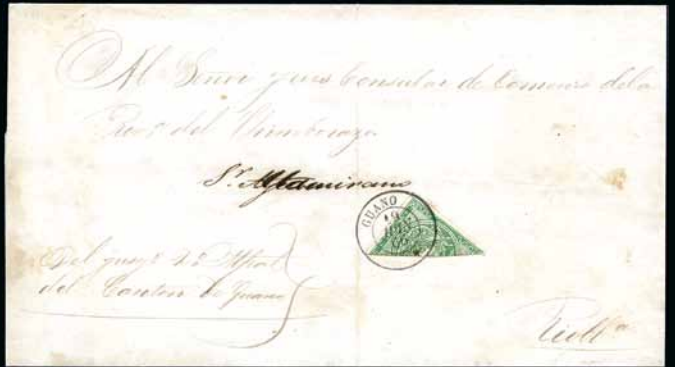 Al Señor Juez Consular de Comercio de la
Prov.ª del Chimborazo
S.r Altamirano
GUANO
19
Del juzg.º 2.º Mpal
del Canton de Guano
Riob.ª